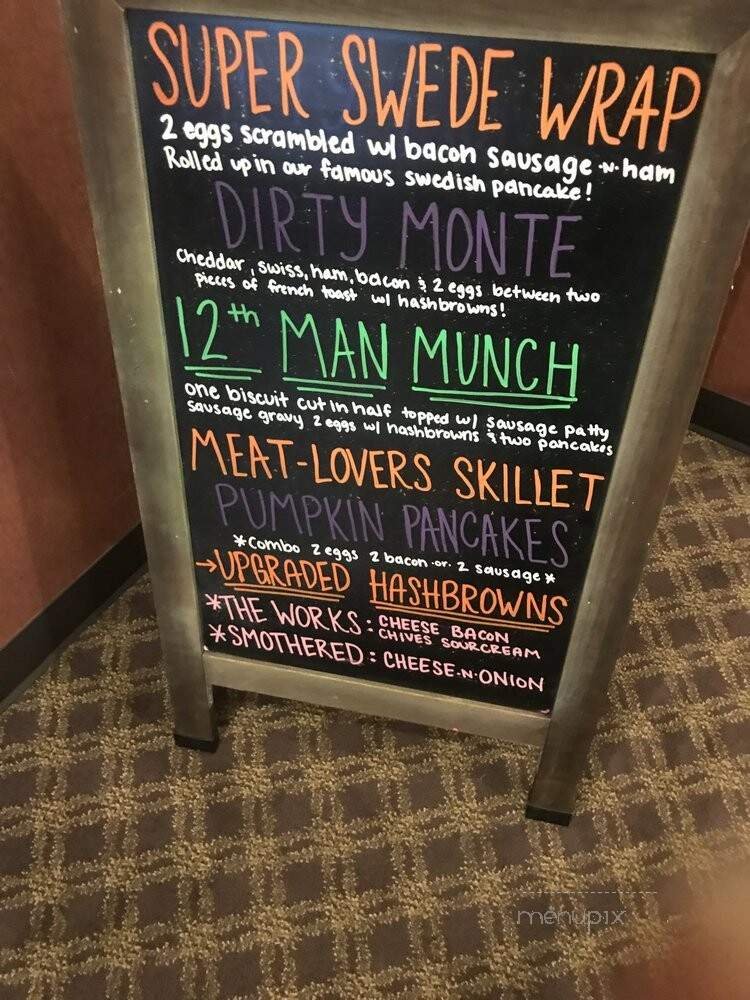 SUPER SWEDE WRAP
2 eggs scrambled w/ bacon sausage -N- ham
Rolled up in our famous swedish pancake!
DIRTY MONTE
Cheddar, swiss, ham, bacon & 2 eggs between two
pieces of french toast w/ hashbrowns!
12th MAN MUNCH
one biscuit cut in half topped w/ sausage patty
sausage gravy 2 eggs w/ hashbrowns & two pancakes
MEAT-LOVERS SKILLET
PUMPKIN PANCAKES
*Combo 2 eggs 2 bacon -or- 2 sausage*
→UPGRADED HASHBROWNS
*THE WORKS: CHEESE BACON
CHIVES SOURCREAM
*SMOTHERED: CHEESE-N-ONION
menupix